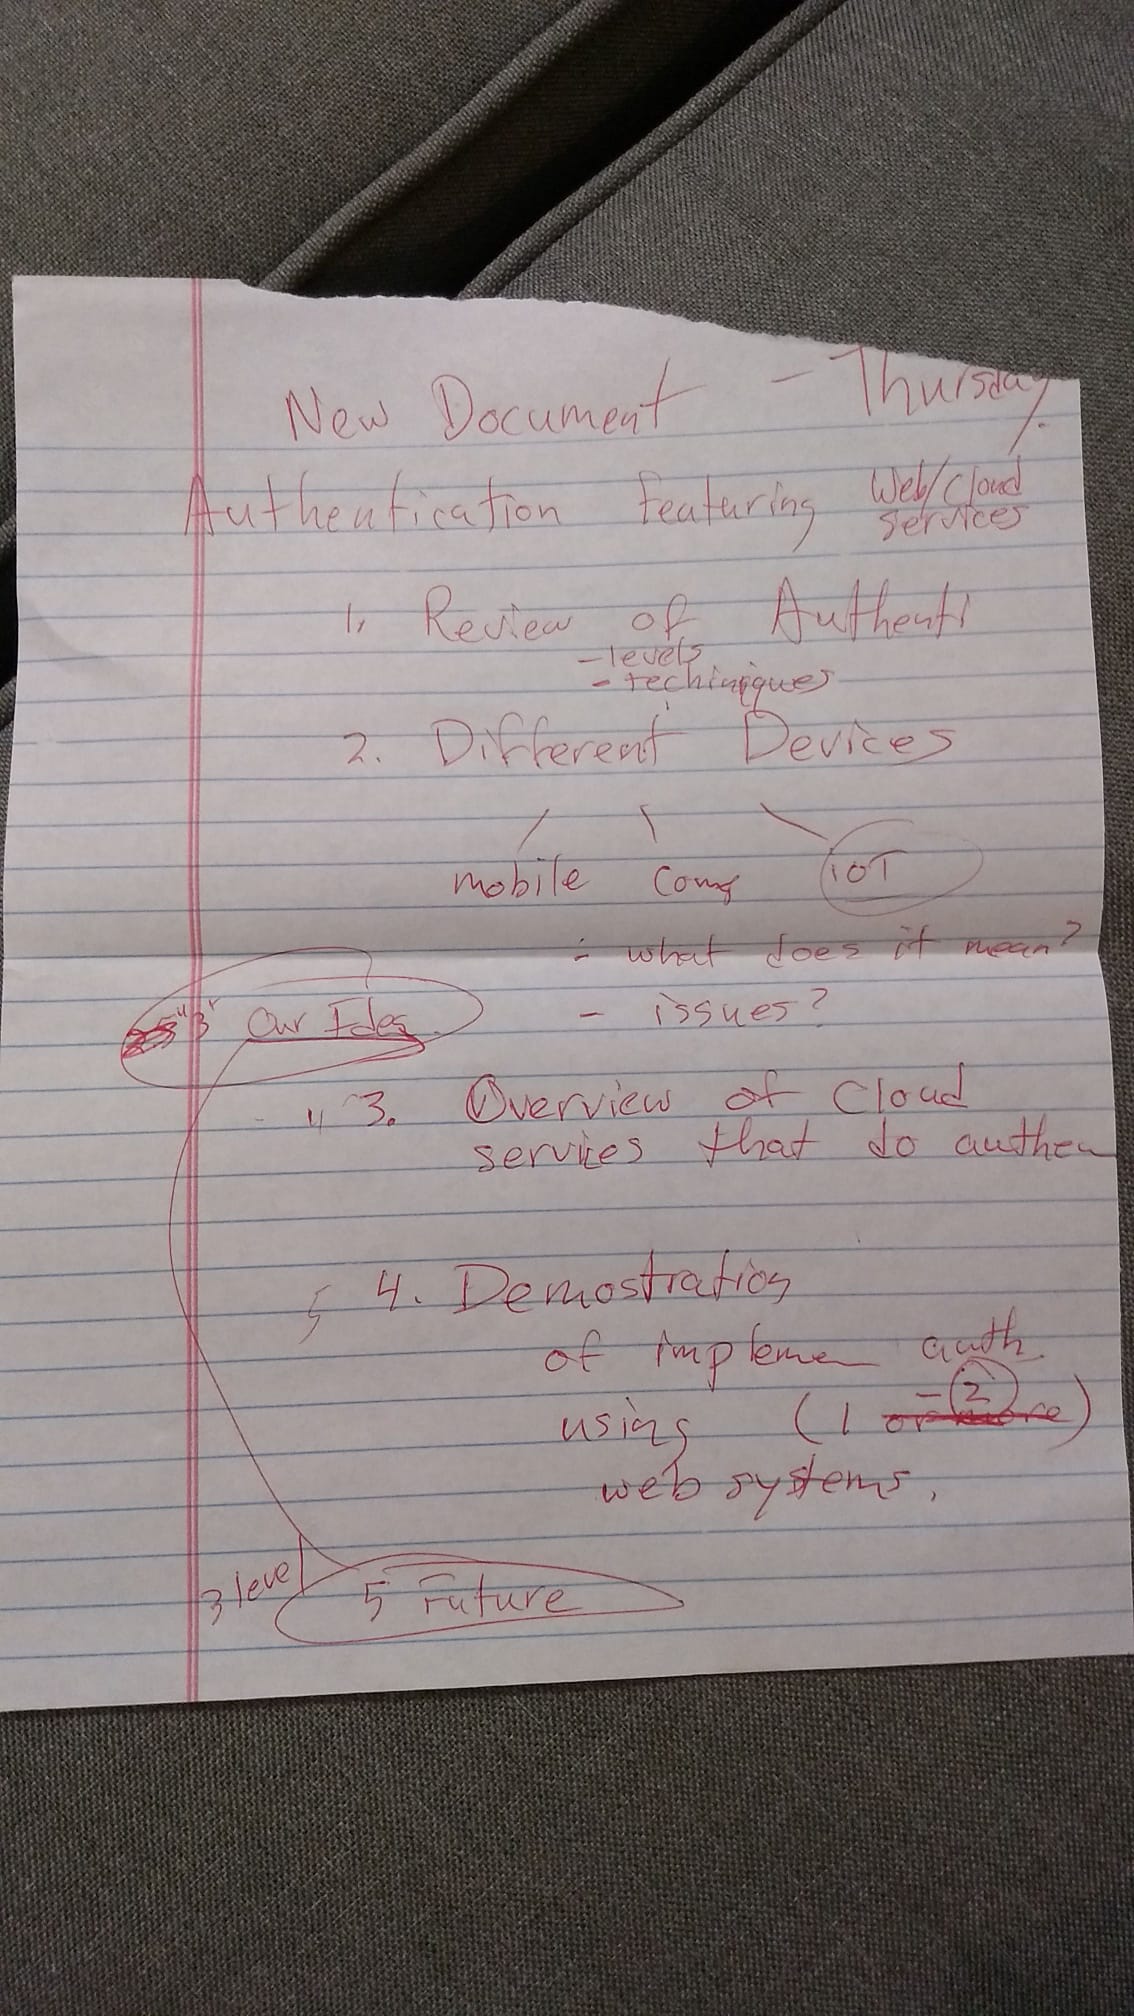 New Document - Thursday.
Authentication featuring Web/Cloud services
1. Review of Authenti
- levels
- techiniques
2. Different Devices
mobile Comp IoT
- what does it mean?
- issues?
"3" Our Idea
4 3. Overview of Cloud
services that do authen
5 4. Demostration
of impleme auth.
using (1 - 2 or more)
web systems.
3 level
5 Future